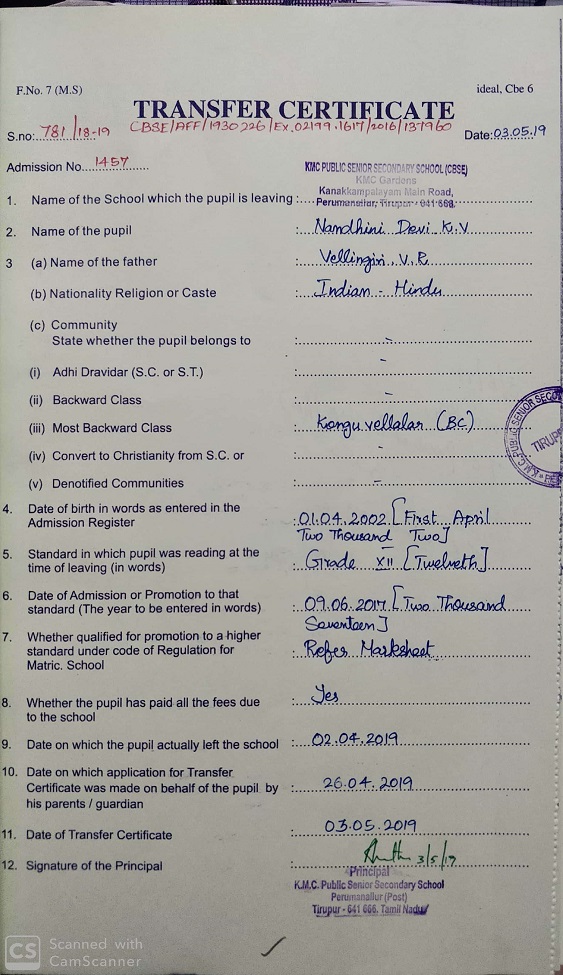 F.No. 7 (M.S)
ideal, Cbe 6
TRANSFER CERTIFICATE
S.no: 781/18-19
CBSE/AFF/1930226/Ex.02199.1617/2016/137960
Date: 03.05.19
Admission No. 1457
KMC PUBLIC SENIOR SECONDARY SCHOOL (CBSE)
KMC Gardens
Kanakkampalayam Main Road,
Perumanallur, Tirupur - 641 666.
1. Name of the School which the pupil is leaving :
2. Name of the pupil : Nandhini Devi. K.V
3 (a) Name of the father : Vellingiri. V.P.
(b) Nationality Religion or Caste : Indian - Hindu
(c) Community
State whether the pupil belongs to : -
(i) Adhi Dravidar (S.C. or S.T.) : -
(ii) Backward Class : -
(iii) Most Backward Class : Kongu vellalar (BC)
(iv) Convert to Christianity from S.C. or : -
(v) Denotified Communities : -
4. Date of birth in words as entered in the
Admission Register : 01.04.2002 [First April
Two Thousand Two]
5. Standard in which pupil was reading at the
time of leaving (in words) : Grade XII [Twelveth]
6. Date of Admission or Promotion to that
standard (The year to be entered in words) : 09.06.2017 [Two Thousand
Seventeen]
7. Whether qualified for promotion to a higher
standard under code of Regulation for : Refer Marksheet
Matric. School
8. Whether the pupil has paid all the fees due : Yes
to the school
9. Date on which the pupil actually left the school : 02.04.2019
10. Date on which application for Transfer
Certificate was made on behalf of the pupil by : 26.04.2019
his parents / guardian
11. Date of Transfer Certificate : 03.05.2019
12. Signature of the Principal : 3/5/19
Principal
K.M.C. Public Senior Secondary School
Perumanallur (Post)
Tirupur - 641 666. Tamil Nadu
K.M.C. PUBLIC SENIOR SECO
TIRUP
CS Scanned with
CamScanner